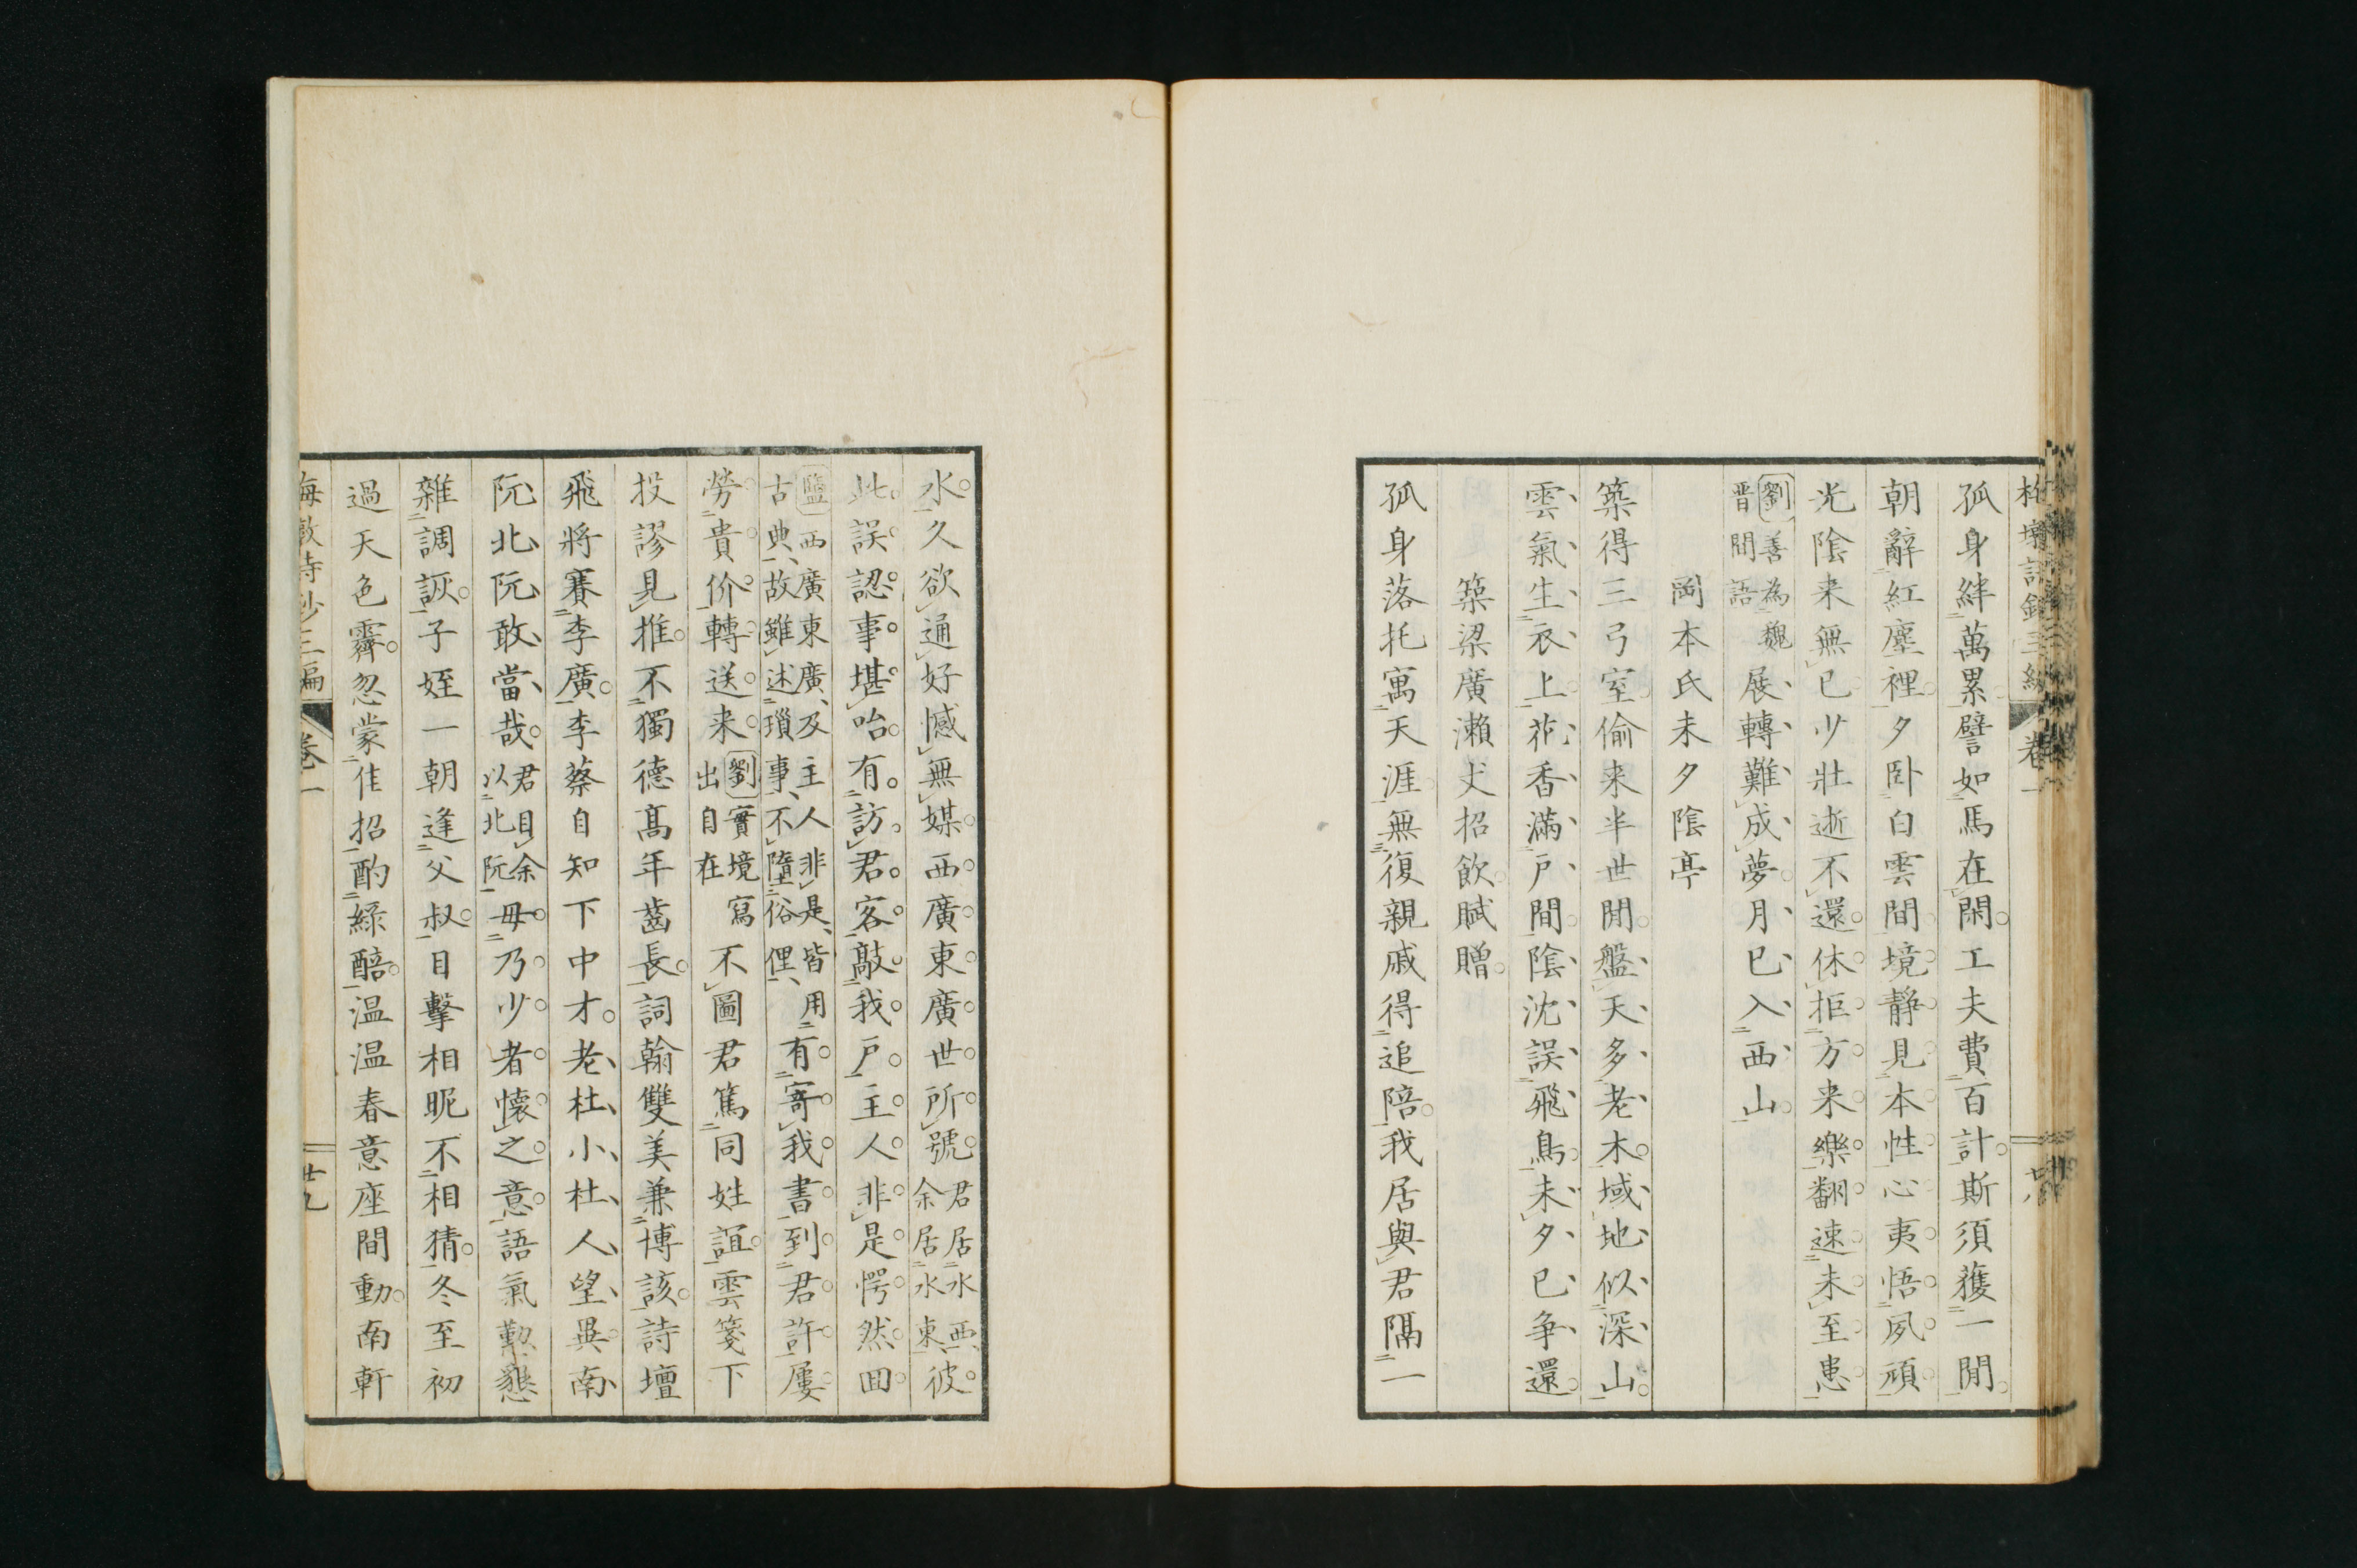 孤身絆萬累譬如馬在閑工夫費百計斯須獲一閒
朝辭紅塵裡夕卧白雲間境靜見本性心夷悟夙頑
光陰来無已少壯逝不還休拒方来樂翻速未至患
劉善為魏
晋間語
展轉難成夢月已入西山
岡本氏未夕陰亭
築得三弓室偷来半世閒盤天多老木域地似深山
雲氣生衣上花香滿戶間陰沈誤飛鳥未夕已争還
築梁廣瀨丈招飲賦贈
孤身落托寓天涯無復親戚得追陪我居與君隔一
水久欲通好憾無媒西廣東廣世所號
君居水西
余居水東
彼
此誤認事堪咍有訪君客敲我戶主人非是愕然回
鹽西廣東廣及主人非是皆用
古典故雖述瑣事不墮俗俚
有寄我書到君許屢
勞貴价轉送来
劉實境寫
出自在
不圖君篤同姓誼雲箋下
投謬見推不獨德高年齒長詞翰雙美兼博該詩壇
飛將賽李廣李蔡自知下中才老杜小杜人望異南
阮北阮敢當哉
君目余
以北阮
毋乃少者懷之意語氣勤懇
雜調詼子姪一朝逢父叔目擊相昵不相猜冬至初
過天色霽忽蒙佳招酌綠醅温温春意座間動南軒
卷一
廿九